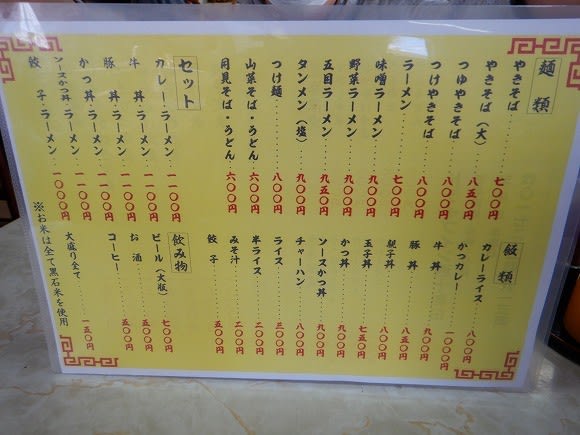 麺類
やきそば……七〇〇円
やきそば（大）……八五〇円
つゆやきそば……八〇〇円
つけやきそば……八〇〇円
ラーメン……七〇〇円
味噌ラーメン……九〇〇円
野菜ラーメン……九〇〇円
五目ラーメン……九五〇円
タンメン（塩）……九〇〇円
つけ麺……八〇〇円
山菜そば・うどん……六〇〇円
月見そば・うどん……六〇〇円
セット
カレー・ラーメン……一一〇〇円
牛丼・ラーメン……一一〇〇円
豚丼・ラーメン……一一〇〇円
かつ丼・ラーメン……一一〇〇円
ソースかつ丼・ラーメン……一一〇〇円
餃子・ラーメン……一〇〇〇円
飯類
カレーライス……八〇〇円
かつカレー……一〇〇〇円
牛丼……九〇〇円
豚丼……八五〇円
親子丼……八〇〇円
玉子丼……七五〇円
かつ丼……九〇〇円
ソースかつ丼……九〇〇円
チャーハン……八〇〇円
ライス……三〇〇円
半ライス……二〇〇円
みそ汁……二〇〇円
餃子……五〇〇円
飲み物
ビール（大瓶）……七〇〇円
お酒……五〇〇円
コーヒー……五〇〇円
大盛り全て……一五〇円
※お米は全て黒石米を使用